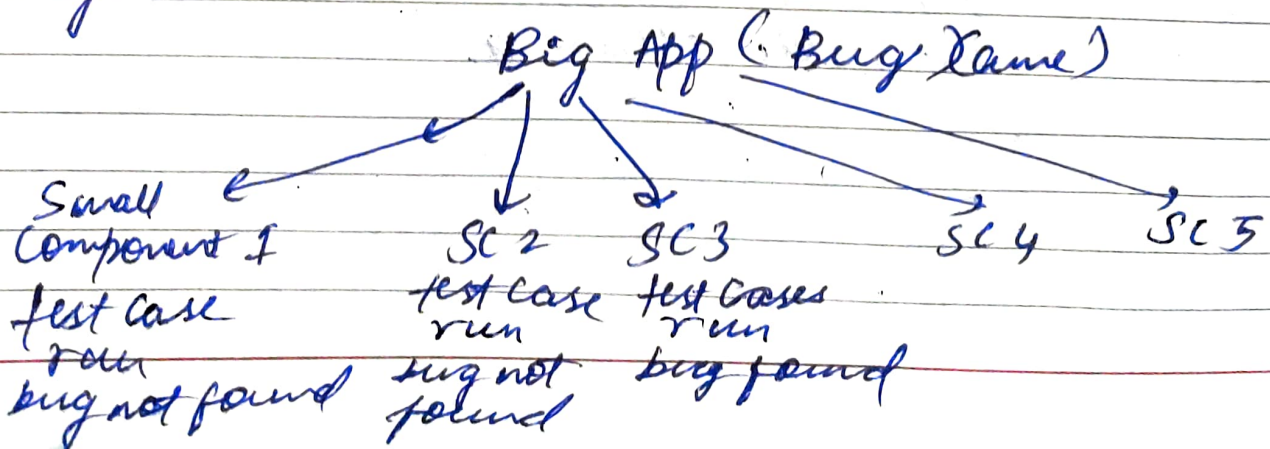 Big App (Bug Came)
Small
Component 1
test case
run
bug not found
SC 2
test case
run
bug not
found
SC3
test cases
run
bug found
SC 4
SC 5